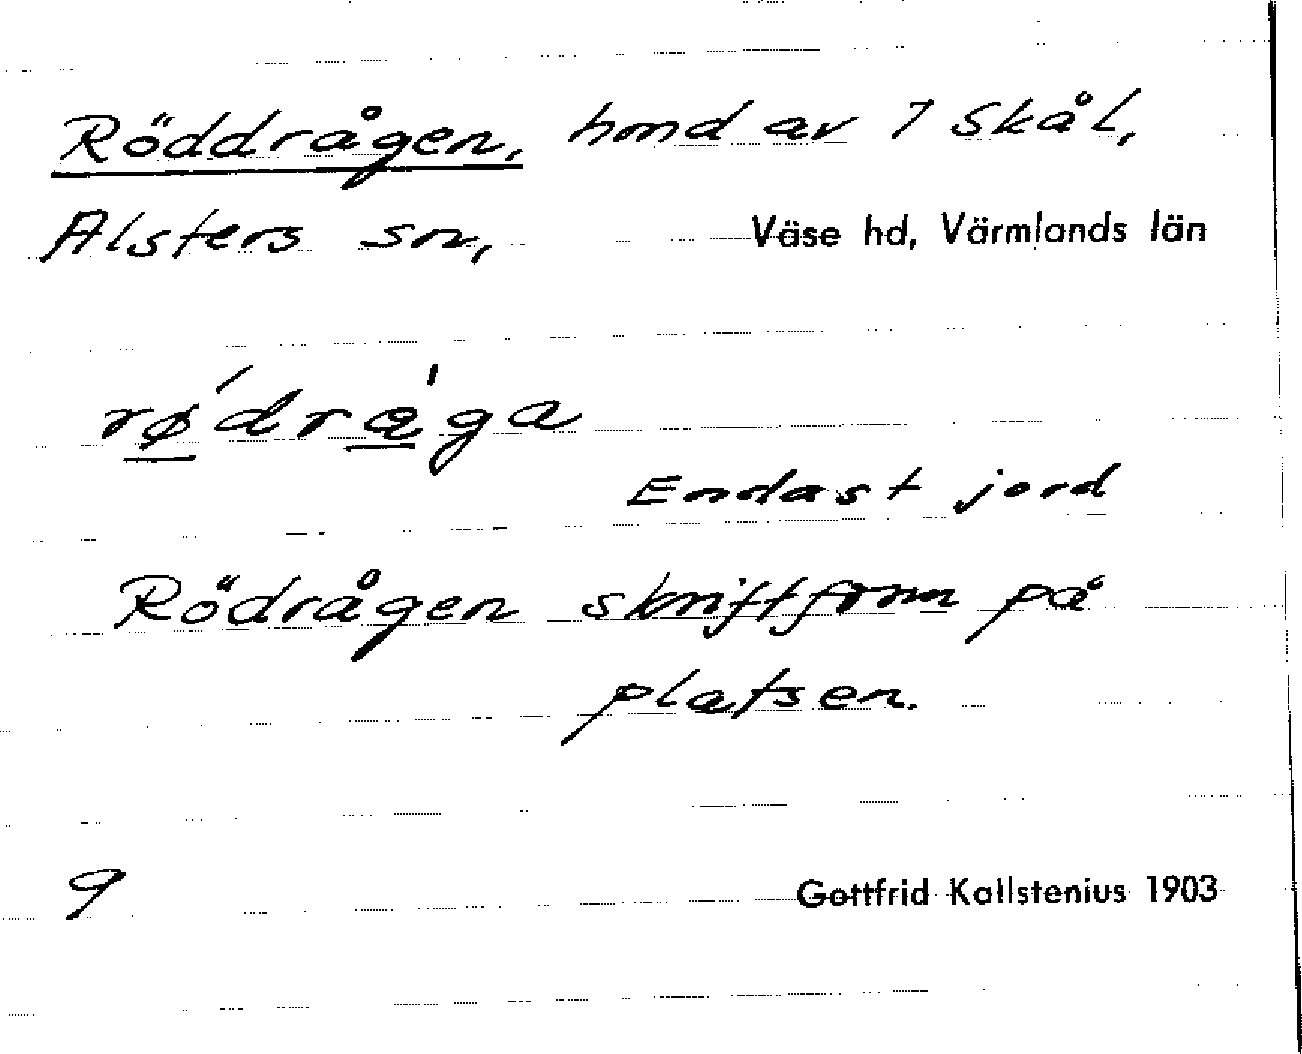 Röddrågen, hmd av 7 Skål,
Alsters sn, Väse hd, Värmlands län
rǿdra̍ga
Endast jord
Rödrågen skriftform på
platsen.
9 Gottfrid Kallstenius 1903